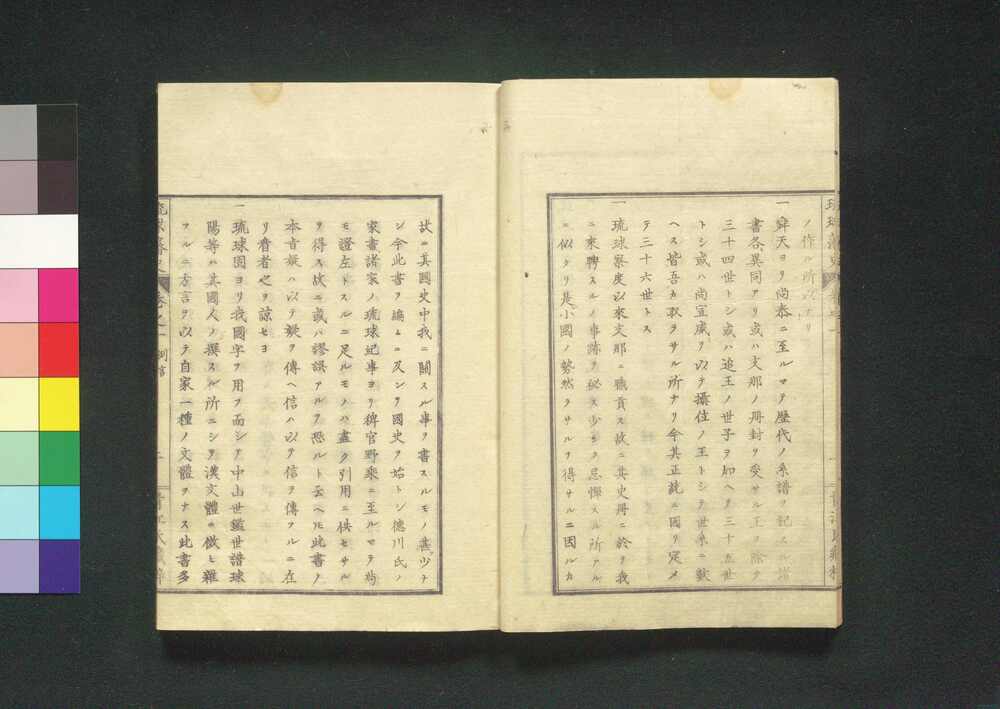 ノ作ル所以ナリ
一舜天ヨリ尚泰ニ至ルマテ歴代ノ系譜ヲ記スル諸
書各異同アリ或ハ支那ノ册封ヲ受サル王ヲ除テ
三十四世トシ或ハ追王ノ世子ヲ加ヘテ三十五世
トシ或ハ尚宣威ヲ以テ攝位ノ王トシテ世系ニ歟
ヘス皆吾カ取ラサル所ナリ今其正統ニ因リ定メ
テ三十六世トス
一琉球察度以來支那ニ職貢ス故ニ其史册ニ於テ我
ニ來聘スルノ事跡ヲ秘ス少シク忌憚スル所アル
ニ似タリ是小國ノ勢然ラサルヲ得サルニ因ルカ
故ニ其國史中我ニ關スル事ヲ書スルモノ甚少ナ
シ今此書ヲ編ムニ及ンテ國史ヲ始トシ德川氏ノ
家書諸家ノ琉球紀事ヨリ稗官野乘ニ至ルマテ苟
モ證左トスルニ足ルモノハ盡ク引用ニ供セサル
ヲ得ス故ニ或ハ謬誤アルヲ恐ルト云ヘトモ此書ノ
本旨疑ハ以テ疑ヲ傳ヘ信ハ以テ信ヲ傳フルニ在
リ看者之ヲ諒セヨ
一琉球國ヨリ我國字ヲ用フ而シテ中山世鑑世譜球
陽等ハ其國人ノ撰スル所ニシテ漢文體ニ倣ヒ雜
フルニ方言ヲ以テ自家一種ノ文體ヲナス此書多
琉球藩史 卷之一 例言